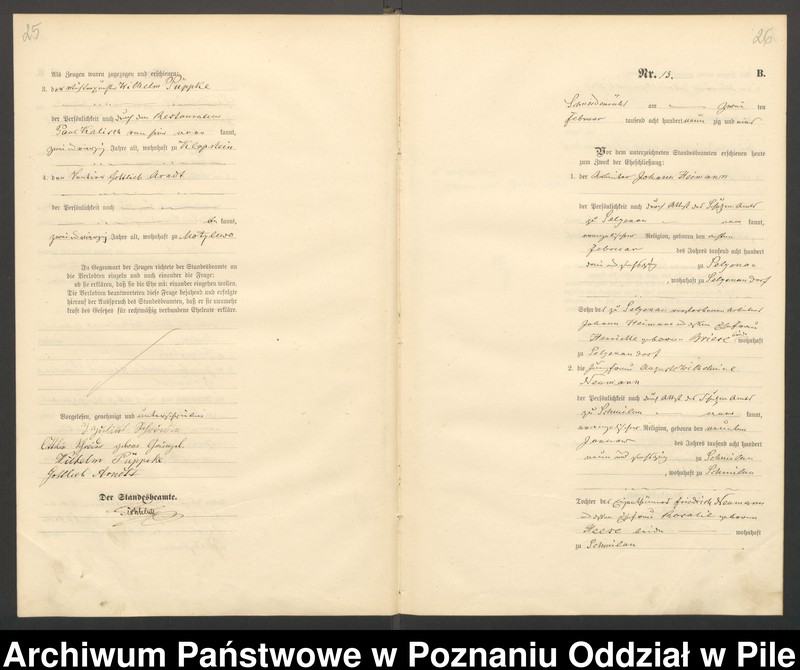 25
Als Zeugen waren zugezogen und erschienen:
3. der Wilhelm Püppke
der Persönlichkeit nach durch den Restaurateur
Paul Kalisch kannt,
zwei und vierzig Jahre alt, wohnhaft zu Klappstein
4. der Rentier Gottlieb Arndt
der Persönlichkeit nach
kannt,
Jahre alt, wohnhaft zu Motylewo
In Gegenwart der Zeugen richtete der Standesbeamte an
die Verlobten einzeln und nach einander die Frage:
ob sie erklären, daß sie die Ehe mit einander eingehen wollen.
Die Verlobten beantworteten diese Frage bejahend und erfolgte
hierauf der Ausspruch des Standesbeamten, daß er sie nunmehr
kraft des Gesetzes für rechtmäßig verbundene Eheleute erkläre.
Vorgelesen, genehmigt und unterschrieben
geborene
Wilhelm Püppke
Gottlieb Arndt
Der Standesbeamte.
26
Nr. 13. B.
Schneidemühl am zwei ten
Februar tausend acht hundert neun zig und eins
Vor dem unterzeichneten Standesbeamten erschienen heute
zum Zweck der Eheschließung:
1. der Arbeiter Johann Heimann
der Persönlichkeit nach durch Attest des Schulzen Amts
zu Selgenau kannt,
evangelischer Religion, geboren den ersten
Februar des Jahres tausend acht hundert
drei und sechszig zu Selgenau
, wohnhaft zu Selgenau Dorf
Sohn des zu Selgenau verstorbenen Arbeiters
Johann Heimann und dessen Ehefrau
Henriette geborenen Briese wohnhaft
zu Selgenau Dorf
2. die Jungfrau Auguste Wilhelmine
Neumann
der Persönlichkeit nach durch Attest des Schulzen Amts
zu Schmilau kannt,
evangelischer Religion, geboren den neunten
Januar des Jahres tausend acht hundert
neun und sechszig zu Schmilau
, wohnhaft zu Schmilau
Tochter des Eigenthümers Friedrich Neumann
und dessen Ehefrau Rosalie geborenen
Heese beide wohnhaft
zu Schmilau
Archiwum Państwowe w Poznaniu Oddział w Pile